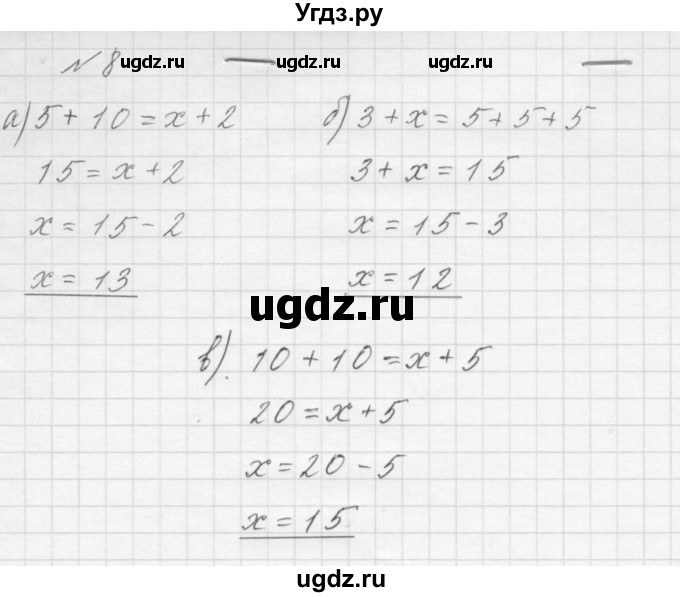 Угдз.ру
№ 8
ugdz.ru ugdz.ru ugdz.ru
а) 5 + 10 = x + 2
15 = x + 2
x = 15 - 2
x = 13
б) 3 + x = 5 + 5 + 5
3 + x = 15
x = 15 - 3
x = 12
ugdz.ru
в). 10 + 10 = x + 5
20 = x + 5
x = 20 - 5
x = 15
ugdz.ru